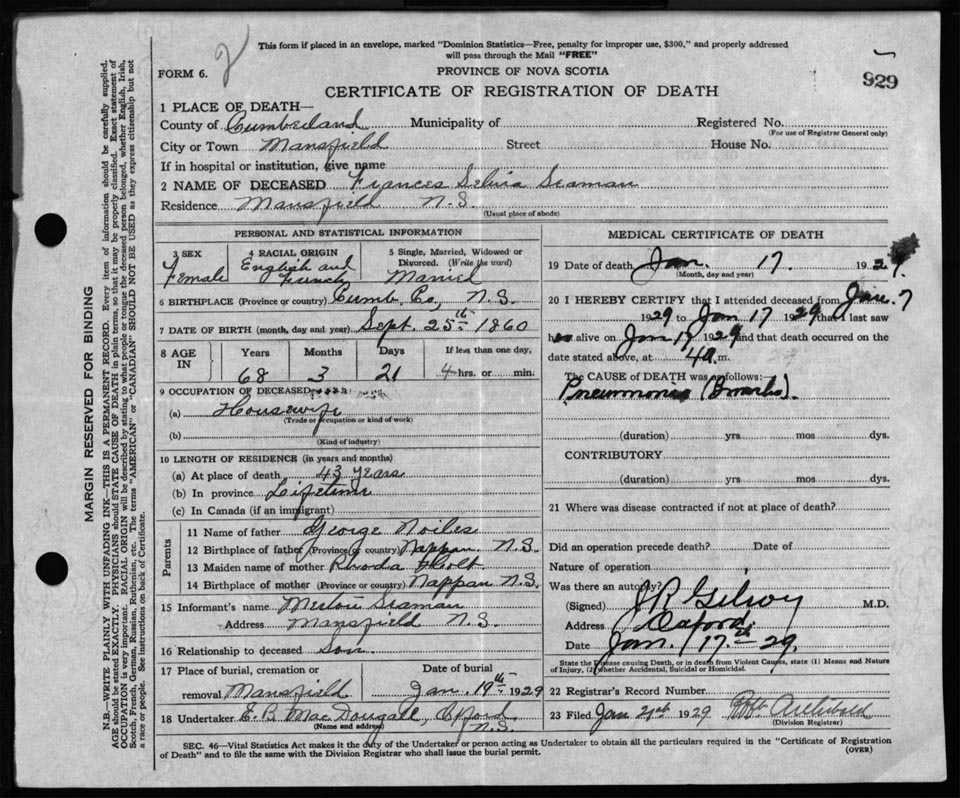 This form if placed in an envelope, marked "Dominion Statistics—Free, penalty for improper use, $300," and properly addressed
will pass through the Mail "FREE"
2
FORM 6.
PROVINCE OF NOVA SCOTIA
929
CERTIFICATE OF REGISTRATION OF DEATH
1 PLACE OF DEATH—
County of Cumberland Municipality of Registered No.
(For use of Registrar General only)
City or Town Mansfield Street House No.
If in hospital or institution, give name
2 NAME OF DECEASED Frances Seaman
Residence Mansfield N.S.
(Usual place of abode)
PERSONAL AND STATISTICAL INFORMATION
3 SEX 4 RACIAL ORIGIN 5 Single, Married, Widowed or Divorced. (Write the word)
Female English and French Married
6 BIRTHPLACE (Province or country) Cumb. Co, N.S.
7 DATE OF BIRTH (month, day and year) Sept. 25th 1860
8 AGE IN Years Months Days If less than one day,
68 3 21 4 hrs. or min.
9 OCCUPATION OF DECEASED
(a) Housewife
(Trade or occupation or kind of work)
(b)
(Kind of industry)
10 LENGTH OF RESIDENCE (in years and months)
(a) At place of death 43 years
(b) In province Lifetime
(c) In Canada (if an immigrant)
Parents
11 Name of father George Noiles
12 Birthplace of father (Province or country) Nappan N.S.
13 Maiden name of mother Rhoda
14 Birthplace of mother (Province or country) Nappan N.S.
15 Informant's name Seaman
Address Mansfield N.S.
16 Relationship to deceased Son
17 Place of burial, cremation or removal Mansfield Date of burial Jan. 19th 1929
18 Undertaker E. B. MacDougall, Oxford N.S.
(Name and address)
MEDICAL CERTIFICATE OF DEATH
19 Date of death Jan. 17. 1929.
(Month, day and year)
20 I HEREBY CERTIFY that I attended deceased from Jan. 7
1929 to Jan 17 1929 that I last saw
her alive on Jan 17 1929 and that death occurred on the
date stated above, at 4 a.m.
The CAUSE OF DEATH was as follows:
Pneumonia (Broncho).
(duration) yrs mos dys.
CONTRIBUTORY
(duration) yrs mos dys.
21 Where was disease contracted if not at place of death?
Did an operation precede death? Date of
Nature of operation
Was there an autopsy?
(Signed) J R Gilroy M.D.
Address Oxford.
Date Jan. 17th 29.
State the Disease causing Death, or in death from Violent Causes, state (1) Means and Nature
of Injury, (2) whether Accidental, Suicidal or Homicidal.
22 Registrar's Record Number
23 Filed Jan 21st 1929 Archibald
(Division Registrar)
SEC. 46—Vital Statistics Act makes it the duty of the Undertaker or person acting as Undertaker to obtain all the particulars required in the "Certificate of Registration
of Death" and to file the same with the Division Registrar who shall issue the burial permit.
(OVER)
MARGIN RESERVED FOR BINDING
N.B.—WRITE PLAINLY WITH UNFADING INK—THIS IS A PERMANENT RECORD. Every item of information should be carefully supplied.
AGE should be stated EXACTLY. PHYSICIANS should STATE CAUSE OF DEATH in plain terms, so that it may be properly classified. Exact statement of
OCCUPATION is very important. RACIAL ORIGIN will be described by stating to what people or tongue the deceased person belonged, whether English, Irish,
Scotch, French, German, Russian, Ruthenian, etc. The terms "AMERICAN" or "CANADIAN" SHOULD NOT BE USED as they express citizenship but not
a race or people. See instructions on back of Certificate.